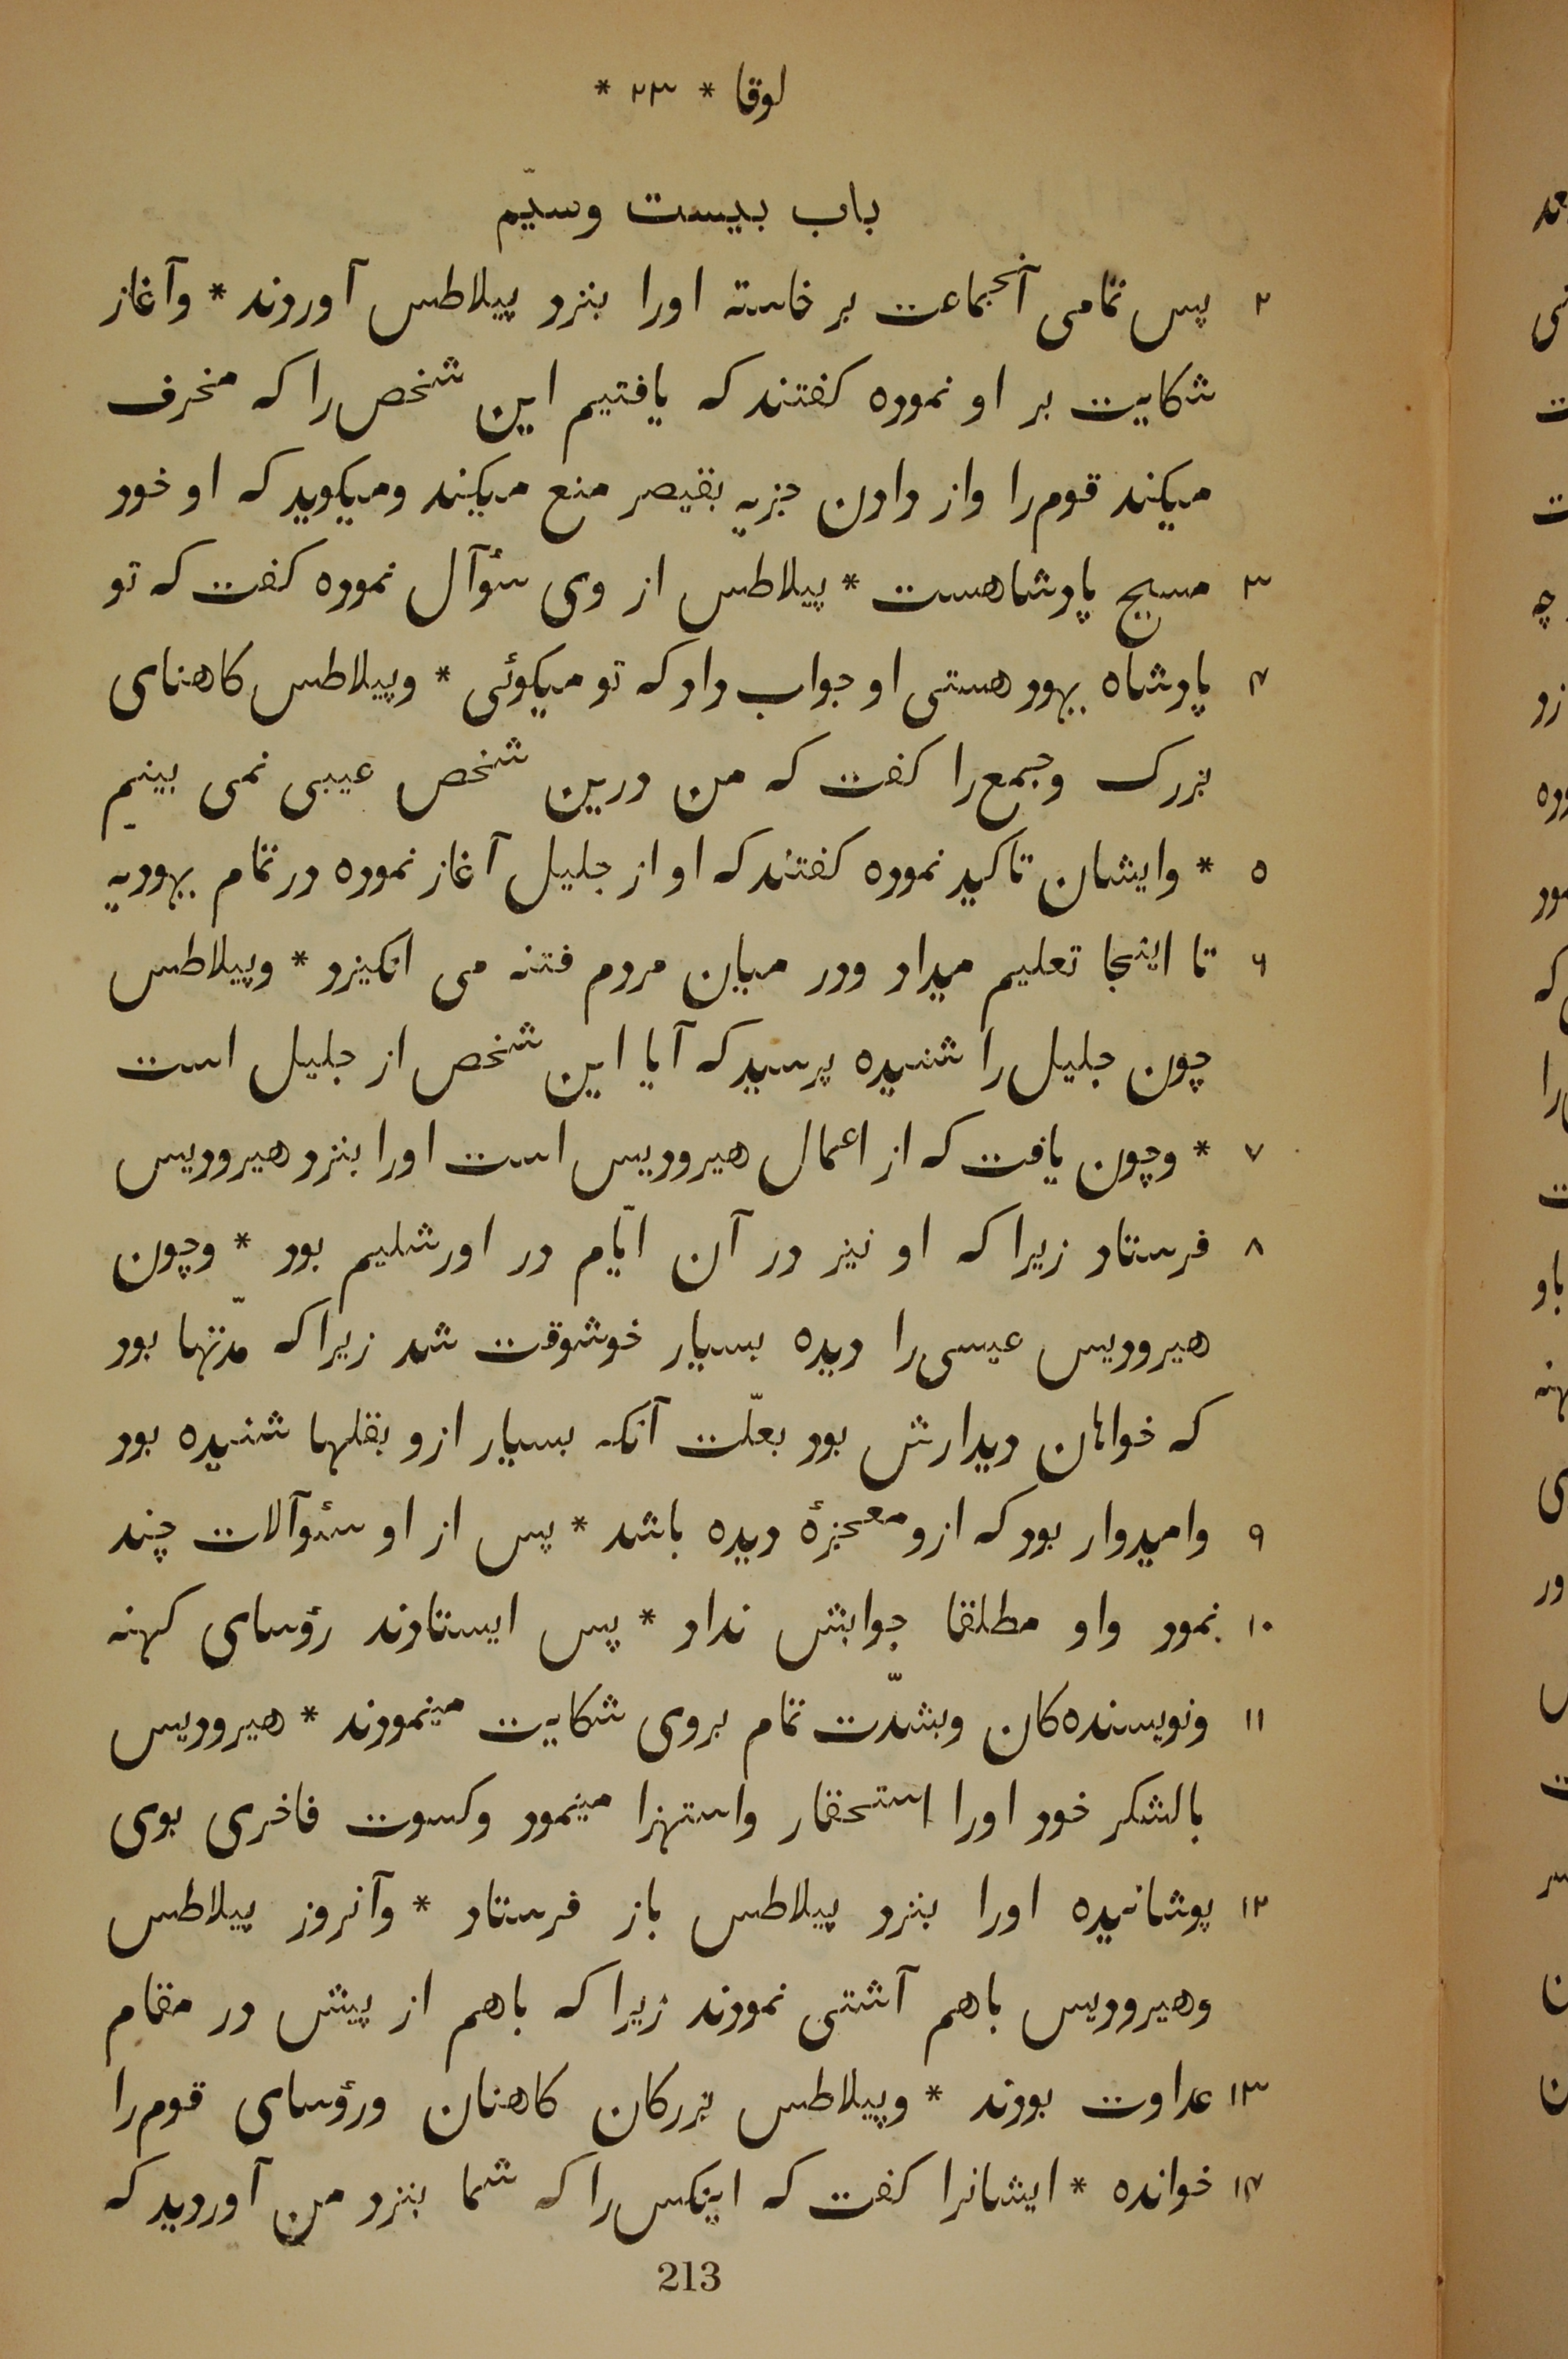 لوقا * ٢٣ *
باب بیست وسیّم
٢ پس تمامی آنجماعت بر خاسته اورا بنزد پیلاطس آوردند * وآغاز
شکایت بر او نموده کفتند که یافتیم این شخص را که منحرف
میکند قوم را واز دادن جزیه بقیصر منع میکند ومیکوید که او خود
٣ مسیح پادشاهست * پیلاطس از وی سئوآل نموده کفت که تو
۴ پادشاه یهود هستی او جواب داد که تو میکوئی * وپیلاطس کاهنای
بزرک وجمع را کفت که من درین شخص عیبی نمی بینم
٥ * وایشان تاکید نموده کفتند که او از جلیل آغاز نموده در تمام یهودیّه
٦ تا اینجا تعلیم میداد ودر میان مردم فتنه می انکیزد * وپیلاطس
چون جلیل را شنیده پرسید که آیا این شخص از جلیل است
٧ * وچون یافت که از اعمال هیرودیس است اورا بنزد هیرودیس
٨ فرستاد زیرا که او نیز در آن ایّام در اورشلیم بود * وچون
هیرودیس عیسی را دیده بسیار خوشوقت شد زیرا که مدّتها بود
که خواهان دیدارش بود بعلّت آنکه بسیار ازو بقلها شنیده بود
٩ وامیدوار بود که ازو معجزهٔ دیده باشد * پس از او سئوآلات چند
١٠ نمود واو مطلقا جوابش نداد * پس ایستادند رؤسای کهنه
١١ ونویسنده‌کان وبشدّت تمام بروی شکایت مینمودند * هیرودیس
بالشکر خود اورا استحقار واستهزا مینمود وکسوت فاخری بوی
١٢ پوشانیده اورا بنزد پیلاطس باز فرستاد * وآنروز پیلاطس
وهیرودیس باهم آشتی نمودند زیرا که باهم از پیش در مقام
١٣ عداوت بودند * وپیلاطس بزرکان کاهنان ورؤسای قوم را
١۴ خوانده * ایشانرا کفت که اینکس را که شما بنزد من آوردید که
213